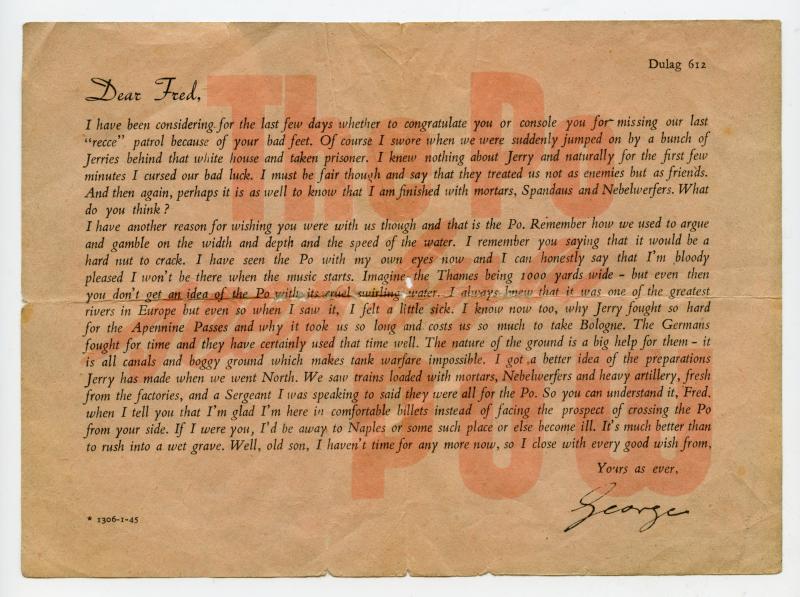 The Po
Dulag 612
Dear Fred,
I have been considering for the last few days whether to congratulate you or console you for missing our last
"recce" patrol because of your bad feet. Of course I swore when we were suddenly jumped on by a bunch of
Jerries behind that white house and taken prisoner. I knew nothing about Jerry and naturally for the first few
minutes I cursed our bad luck. I must be fair though and say that they treated us not as enemies but as friends.
And then again, perhaps it is as well to know that I am finished with mortars, Spandaus and Nebelwerfers. What
do you think ?
I have another reason for wishing you were with us though and that is the Po. Remember how we used to argue
and gamble on the width and depth and the speed of the water. I remember you saying that it would be a
hard nut to crack. I have seen the Po with my own eyes now and I can honestly say that I'm bloody
pleased I won't be there when the music starts. Imagine the Thames being 1000 yards wide - but even then
you don't get an idea of the Po with its cruel swirling water. I always knew that it was one of the greatest
rivers in Europe but even so when I saw it, I felt a little sick. I know now too, why Jerry fought so hard
for the Apennine Passes and why it took us so long and costs us so much to take Bologne. The Germans
fought for time and they have certainly used that time well. The nature of the ground is a big help for them - it
is all canals and boggy ground which makes tank warfare impossible. I got a better idea of the preparations
Jerry has made when we went North. We saw trains loaded with mortars, Nebelwerfers and heavy artillery, fresh
from the factories, and a Sergeant I was speaking to said they were all for the Po. So you can understand it, Fred,
when I tell you that I'm glad I'm here in comfortable billets instead of facing the prospect of crossing the Po
from your side. If I were you, I'd be away to Naples or some such place or else become ill. It's much better than
to rush into a wet grave. Well, old son, I haven't time for any more now, so I close with every good wish from,
Yours as ever,
George
* 1306-1-45